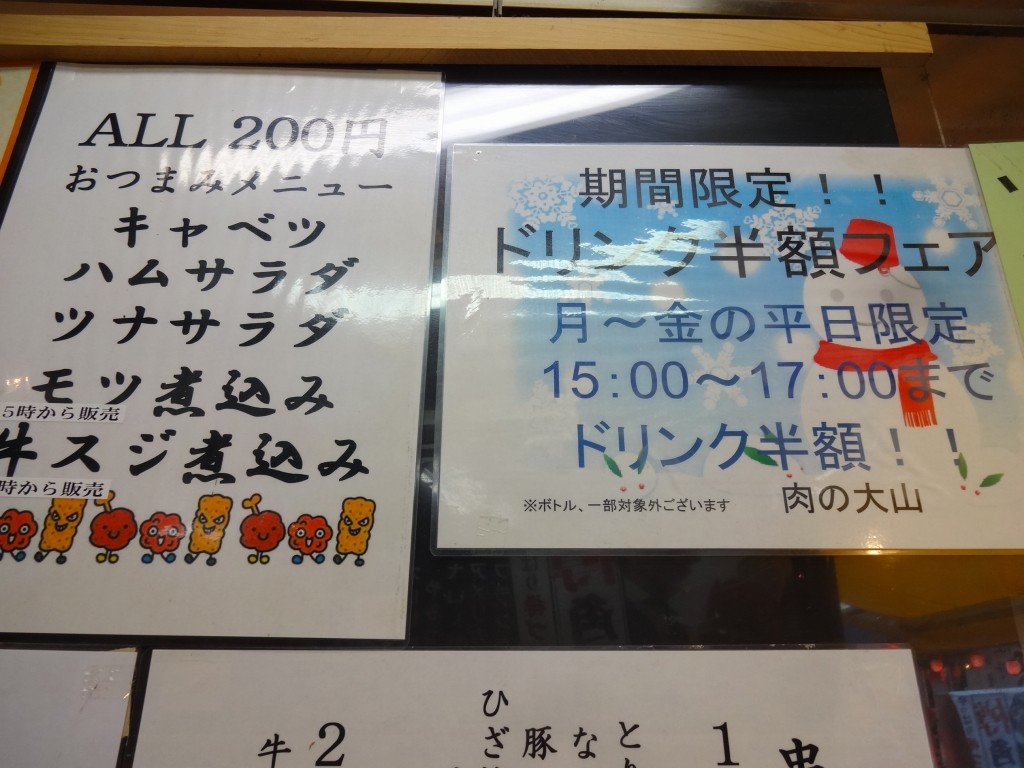 ALL 200円
おつまみメニュー
キャベツ
ハムサラダ
ツナサラダ
モツ煮込み
5時から販売
牛スジ煮込み
時から販売
期間限定!!
ドリンク半額フェア
月~金の平日限定
15:00~17:00まで
ドリンク半額!!
※ボトル、一部対象外ございます
肉の大山
牛 2
ひざ
豚
な
と
1